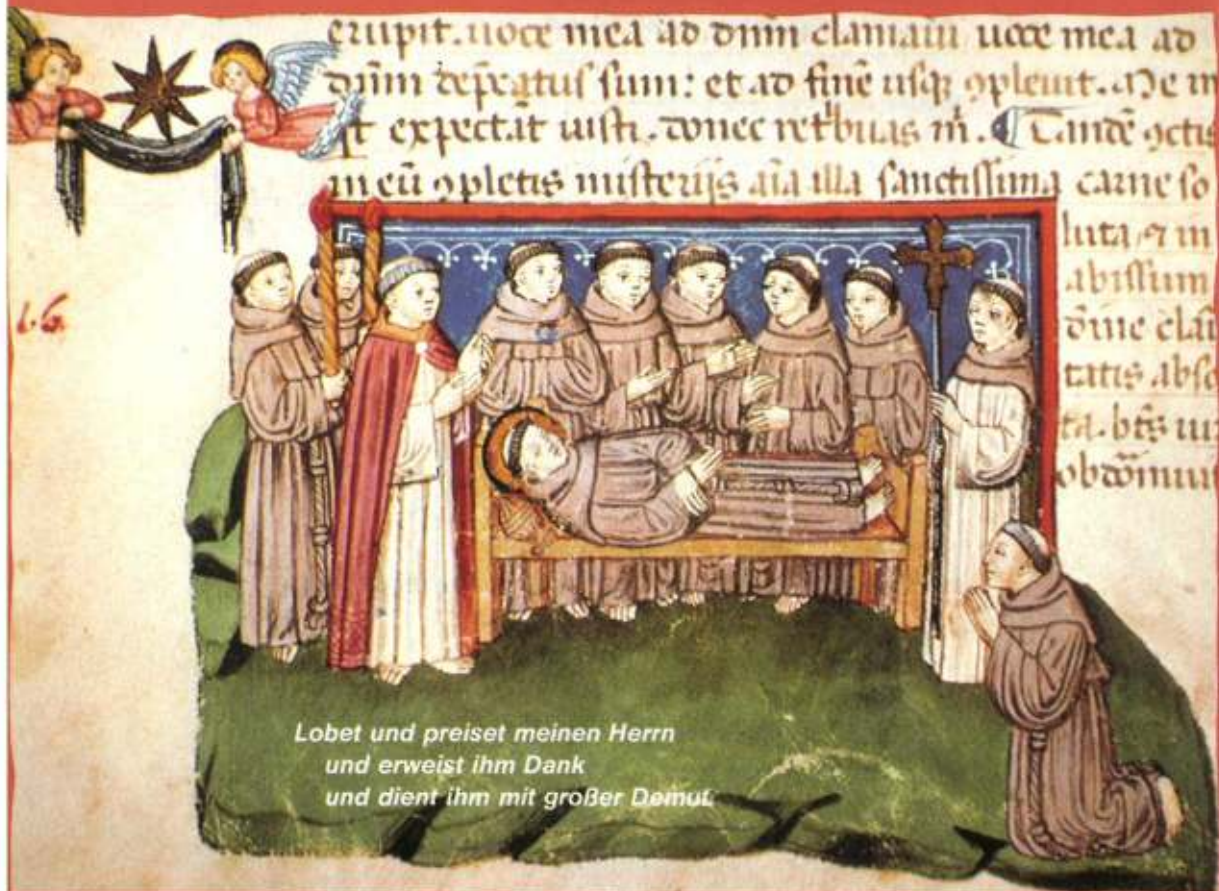 erupit. uoce mea ad dn̄m clamaui uoce mea ad
dn̄m dep̄catus sum: et ad finē usqꝫ ꝯpleuit. Me
expectāt iusti. donec ret̾buas m̄. Tandē ꝯctis
in eū ꝯpletis misterijs aīa illa sanctissima carne so
luta, ⁊ in
abissum
diuīe clai
tatis abso
ta. bt̄s ui
obdōmiuit
l.G.
Lobet und preiset meinen Herrn
und erweist ihm Dank
und dient ihm mit großer Demut.